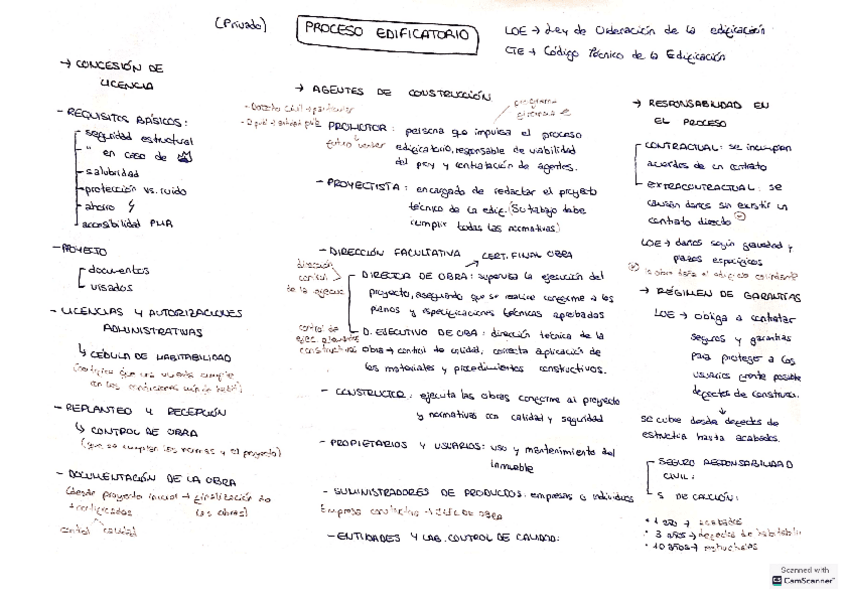 (Privado)
PROCESO EDIFICATORIO
LOE → Ley de Ordenación de la edificación
CTE → Código Técnico de la Edificación
→ CONCESIÓN DE
LICENCIA
- REQUISITOS BÁSICOS:
seguridad estructural
" en caso de
salubridad
protección vs. ruido
ahorro
accesibilidad PMR
- PROYECTO
documentos
visados
- LICENCIAS Y AUTORIZACIONES
ADMINISTRATIVAS
↳ CÉDULA DE HABITABILIDAD
que una vivienda cumple
en las condiciones
- REPLANTEO Y RECEPCIÓN
↳ CONTROL DE OBRA
(que se cumplan las normas y el proyecto)
- DOCUMENTACIÓN DE LA OBRA
(desde proyecto inicial → finalización de
+ certificados las obras)
control calidad
→ AGENTES DE CONSTRUCCIÓN
PROMOTOR: persona que impulsa el proceso
edificatorio, responsable de viabilidad
del proy y contratación de agentes.
- PROYECTISTA: encargado de redactar el proyecto
técnico de la edif. (Su trabajo debe
cumplir todas las normativas)
- DIRECCIÓN FACULTATIVA → CERT. FINAL OBRA
dirección
control
de la
DIRECTOR DE OBRA: supervisa la ejecución del
proyecto, asegurando que se realice conforme a los
planos y especificaciones técnicas aprobadas
control de
constructivos
D. EJECUTIVO DE OBRA: dirección técnica de la
obra → control de calidad, correcta aplicación de
los materiales y procedimientos constructivos.
- CONSTRUCTOR: ejecuta las obras conforme al proyecto
y normativas con calidad y seguridad
- PROPIETARIOS Y USUARIOS: uso y mantenimiento del
inmueble
- SUMINISTRADORES DE PRODUCTOS: empresas o individuos
Empresa DE OBRA
- ENTIDADES Y LAB. CONTROL DE CALIDAD:
→ RESPONSABILIDAD EN
EL PROCESO
CONTRACTUAL: se incumplen
acuerdos de un contrato
EXTRACONTRACTUAL: se
causan daños sin existir un
contrato directo
LOE → daños según gravedad y
plazos específicos
→ RÉGIMEN DE GARANTÍAS
LOE → obliga a contratar
seguros y garantías
para proteger a los
usuarios frente posible
defectos de construcc.
↓
se cubre desde defectos de
estructura hasta acabados.
SEGURO RESPONSABILIDAD
CIVIL:
S. DE CAUCIÓN:
* 1 año → acabados
* 3 años → defectos de habitabilidad
* 10 años → estructurales
Scanned with
CS CamScanner